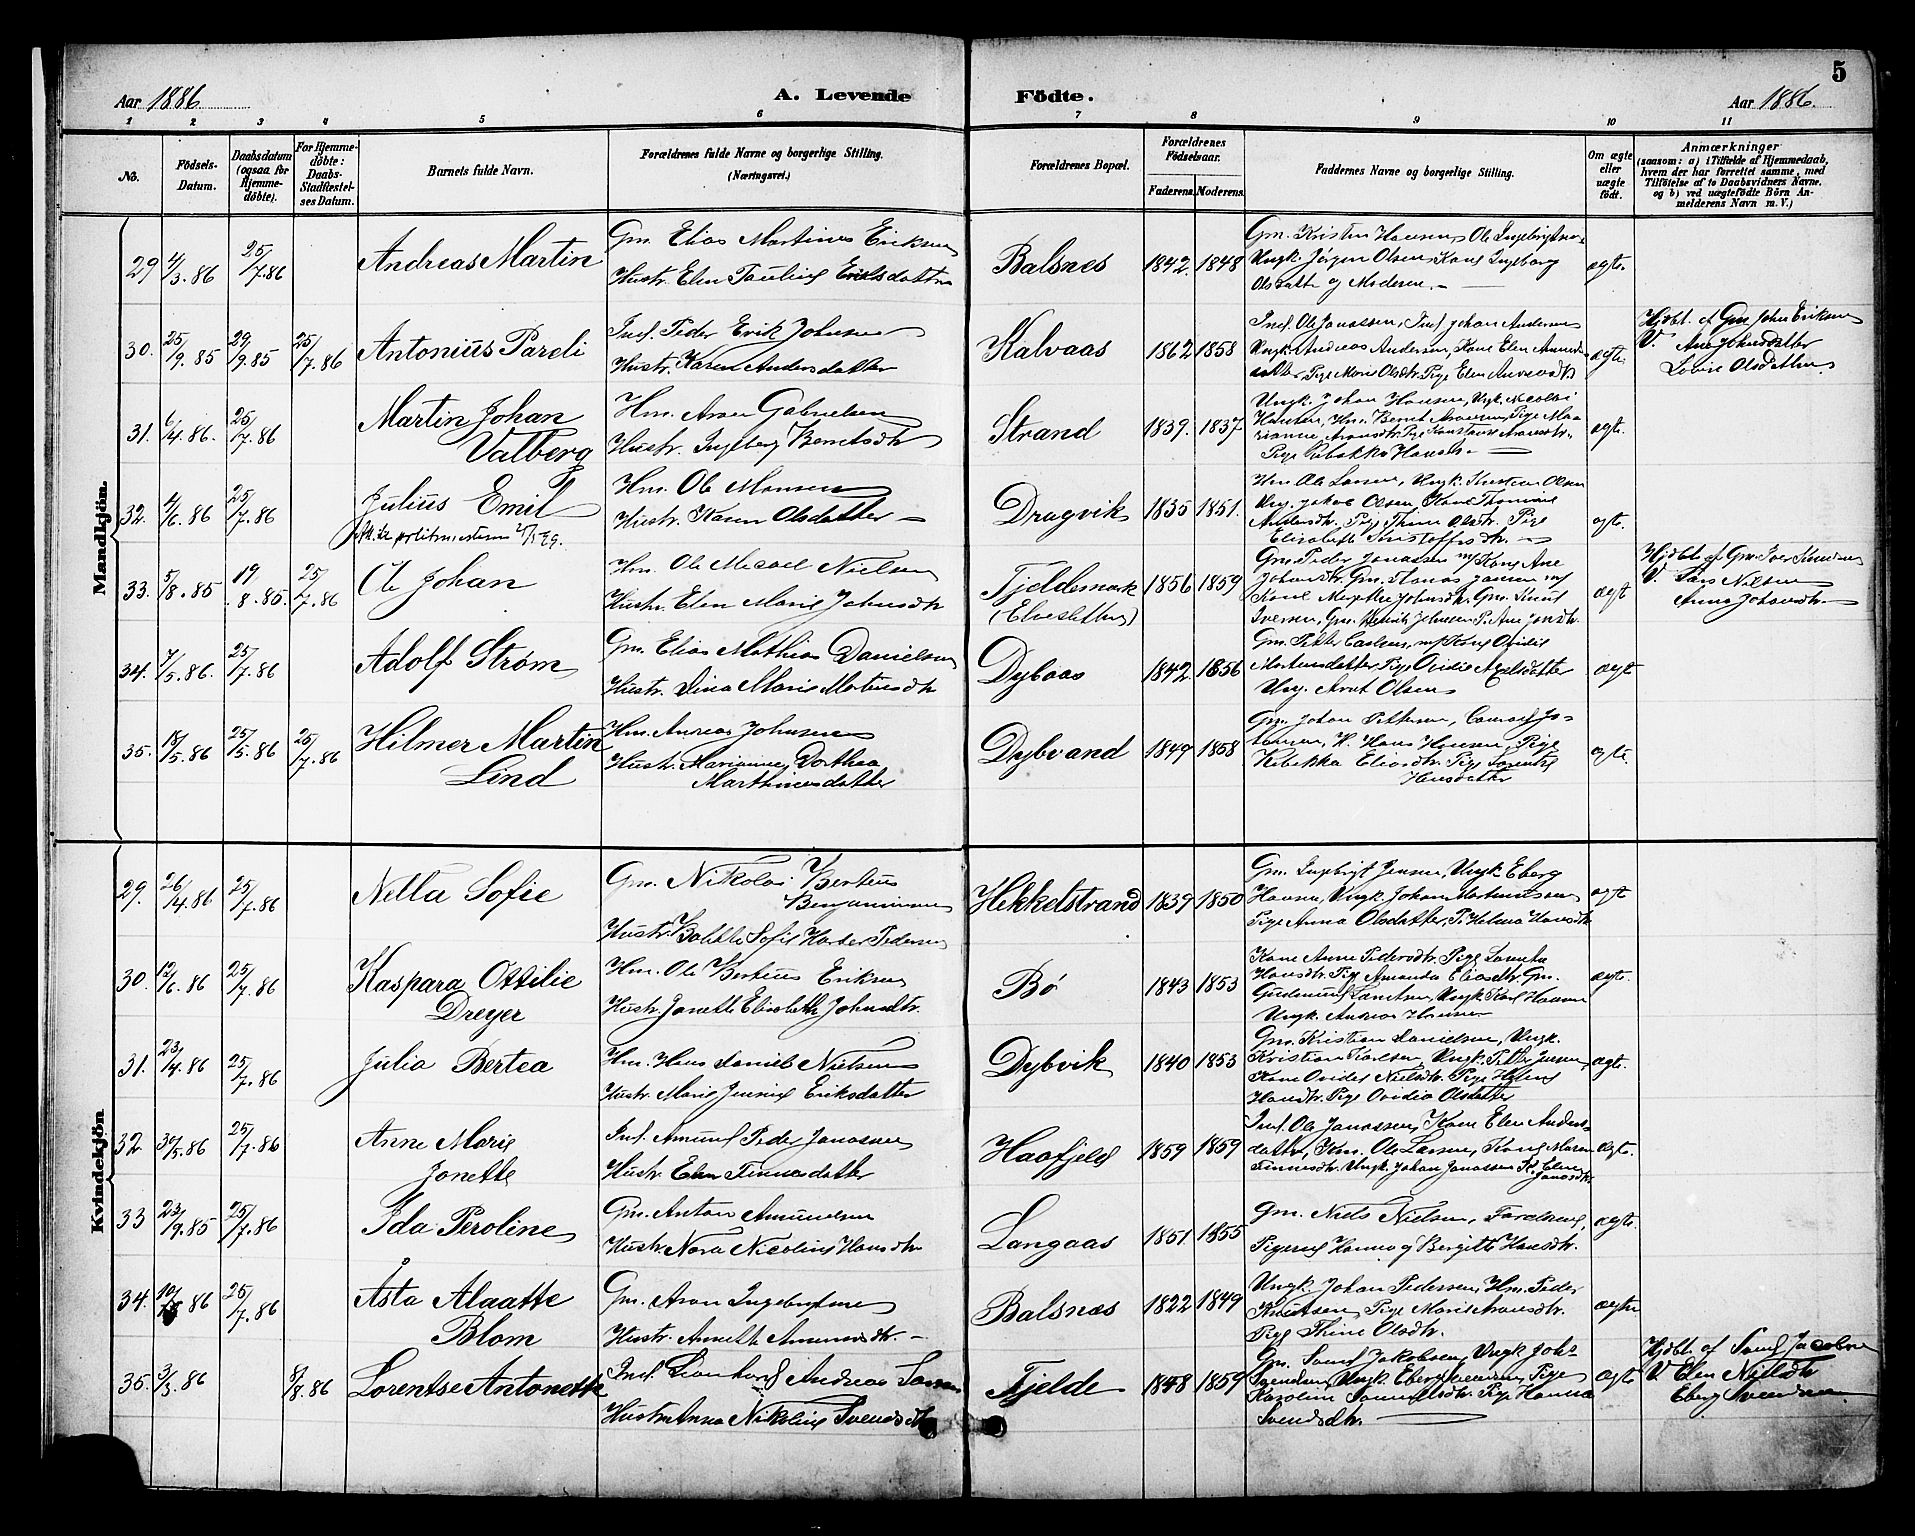 5
Aar 1886
A. Levende Födte.
Aar 1886.
1 2 3 4 5 6 7 8 9 10 11
No.
Födsels-Datum.
Daabsdatum (ogsaa for Hjemme-döbte).
For Hjemme-döbte: Daabs-Stadfæstel-ses Datum.
Barnets fulde Navn.
Forældrenes fulde Navne og borgerlige Stilling. (Næringsvei.)
Forældrenes Bopæl.
Forældrenes Födselsaar.
Faderens. Moderens.
Faddernes Navne og borgerlige Stilling.
Om ægte eller uægte födt.
Anmærkninger
(saasom: a) i Tilfælde af Hjemmedaab, hvem der har forrettet samme, med Tilföielse af to Daabsvidners Navne, og b) ved uægtefödte Börn An-melderens Navn m. V.)
Mandkjön.
29 4/3.86 25/7.86 Andreas Martin
Gm. Elias Martines Eriksen
Hustr. Elen Pauline Erichsdatter
Balsnes 1842. 1848
Gm. Kristen Hansen, Ole Ingebrigtsen
Ungk. Jörgen Olsen, Kone Ingeborg
Olsdatter og Moderen.
ægte.
30. 25/9.85 29/9.85 25/7.86 Antonius Pareli
Inds. Peder Erik Johnsen
Hustr. Karen Andersdatter
Kalvaas 1862 1858
Inds. Ole Janassen, Inds. Johan Andersen
Ungk. Andreas Andersen, Kone Elen Amunds-
datter, Pige Maris Olsdtr. Pige Elen
ægte.
Hjdbt. af Gm John Eriksen
V. Ane Johnsdatter
Lovise Olsdatter
31. 6/4.86. 25/7.86 Martin Johan
Valberg
Hm. Aron Gabrielsen
Hustr. Ingeborg Berntsdtr
Strand 1839. 1837
Ungk. Johan Hansen, Ungk. Nicolai
Hansen, Hm. Bernt Aronsen, Pige Ma-
rianne Aronsdtr. Pige Konstanse Aronsdtr.
Pige Rebekka Hansdr.
ægte.
32. 4/6.86 25/7.86 Julius Emil
Hm. Ole Monsen
Hustr. Karen Olsdatter
Dragvik 1835 1851.
Hm. Ole Larsen, Ungk. Kristian Olsen
Ung. Jakob Olsen, Kone
Andersdtr. Pige Thine Olsdtr. Pige
Elisabeth Kristoffersdtr.
ægte.
33. 5/8.85 19/8.85. 25/7.86 Ole Johan
Hm. Ole Micael Nielsen
Hustr. Elen Marie Johnsdtr
Fjeldemark 1856 1859
(Elvesletten)
Gm. Peder Jonassen m/ Kone Ane
Johnsdtr. Gm. Jonas Jansen m/
Kone Merethe Johnsdtr. Gm. Knud
Iversen, Gm. Henrik Johnsen P. Ane Jonsdtr.
ægte
Hjdbt. af Gm. Iver Knudsen
V. Lars Nilsen
Anna Johansdtr.
34. 7/5.86. 25/7.86 Adolf Strøm
Gm. Elias Mathias Danielsen
Hustr. Lina Marie Mortensdtr
Dybaas 1842. 1856
Gm. Petter Carlsen, m/ Kone Ovidie
Mortensdatter Pige Ovidia Axelsdatter
Ung. Arnt Olsen
ægte
35. 18/5.86 25/5.86 25/7.86 Hilmer Martin
Lind
Hm. Andreas Johnsen
Hustr. Marianne Dorthea
Marthinusdatter
Dybvand 1849 1858
Gm. Johan Pettersen, Conrad Jo-
hansen, H. Hans Hansen, Pige
Rebekka Eliasdtr. Pige Lorentse
Hansdatter
ægte.
Kvindekjön
29. 26/4.86 25/7.86 Nella Sofie
Gm. Nikolai Berteus
Benjaminsen
Hustr. Bolette Sofie Horber Pedersen
Hekkelstrand 1839 1850
Gm. Ingebrigt Jensen, Ungk. Eberg
Hansen, Ungk. Johan Martinussen
Pige Anna Olsdatter, P. Helena Hansdtr.
ægte
30. 12/6.86 25/7.86 Kaspara Ottilie
Dreyer
Hm. Ole Berteus Eriksen
Hustr. Janette Elisabeth Johansdtr.
Bø 1843 1853
Kone Anne Pedersdtr. Pige
Hansdtr. Pige Amanda Eliasdtr. Gm.
Gudmund, Ungk. Karl Hansen
Ungk. Andreas Hansen
ægte.
31. 23/4.86 25/7.86 Julia Bertea
Hm. Hans Daniel Nielsen
Hustr. Marie Jensine Eriksdatter
Dybvik 1840 1853
Gm. Kristian Danielsen, Ungk.
Kristian Karlsen, Ungk. Petter Jensen,
Kone Ovidia Nielsdtr. Pige Helene
Hansdtr. Pige Ovidia Olsdatter
ægte.
32. 30/5.86 25/7.86 Anne Marie
Jonette
Inds. Amund Peder Janassen
Hustr. Elen Finnesdatter
Haafjeld 1859 1859
Inds. Ole Janassen, Kone Elen Anders-
datter, Hm. Ole Larsen, Kone Maren
Finnesdtr. Ungk. Johan Janassen P. Elen
Jonasdtr.
ægte.
33 23/9.85 25/7.86 Ida Peroline
Gm. Anton Amundsen
Hustr. Nora Nicoline Hansdtr
Langaas 1851. 1855
Gm. Niels Nielsen, Forældrene,
Pigerne Hanna og Bergitte Hansdtr.
ægte.
34. 10/ 86 25/7.86 Åsta Alaatte
Blom
Gm. Aron Ingebrigtsen
Hustr. Annette Amundsdtr.
Balsnes 1822 1849
Ungk. Johan Pedersen, Hm. Peder
Knutsen, Pige Marit Aronsdtr.
Pige Thine Olsdtr.
ægte
35. 3/3.86 8/8.86 Lorentse Antonette
Inds. Lionhard Andreas Larsen
Hustr. Anna Nikoline Svendsdtr
Fjelde 1848 1859
Gm. Samd Jakobsen, Ungk Joh.
Svendsen, Ungk. Eberg Svendsen, Pige
Karoline Samuelsdtr. Pige Hanna
Svendsdtr.
ægte
Hjdbt. af Saml Jacobsen
V. Elen Nilsdtr
Eberg Svendsen